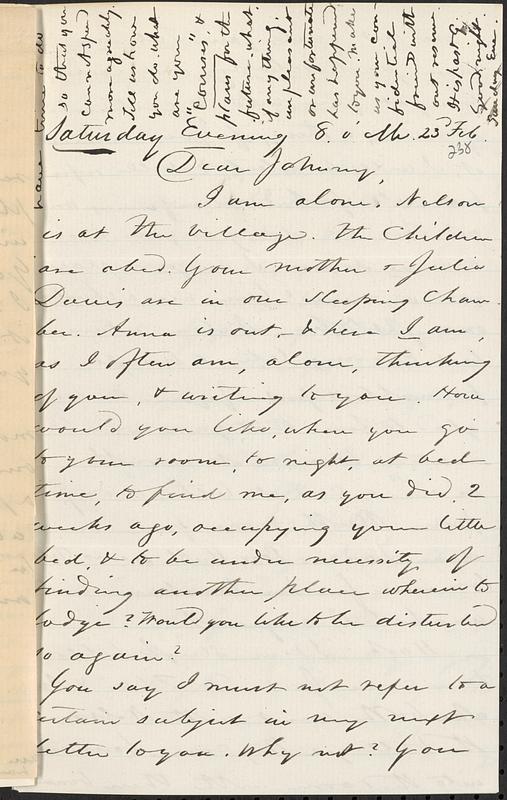 have time to do
so that you
cannot spend
more agreeably.
Tell us how
you do what
are your
"Courses", &
plans for the
future, what,
if anything
unpleasant
or unfortunate
has happened
to you. Make
us your con-
fidential
friend with
out reserve.
Good night
Sunday Eve.
Saturday Evening 8. o clk. 23d Feb.
238
Dear Johnny,
I am alone. Nelson
is at the village. The Children
are abed. Your mother & Julia
Davis are in our sleeping cham-
ber. Anna is out, - & here I am,
as I often am, alone, thinking
of you, & writing to you. How
would you like, when you go
to your room, to night, at bed
time, to find me, as you did, 2
weeks ago, occupying your little
bed, & to be under necessity of
finding another place wherein to
lodge? Would you like to be disturbed
so again?
You say I must not refer to a
certain subject in my next
letter to you. Why not? You